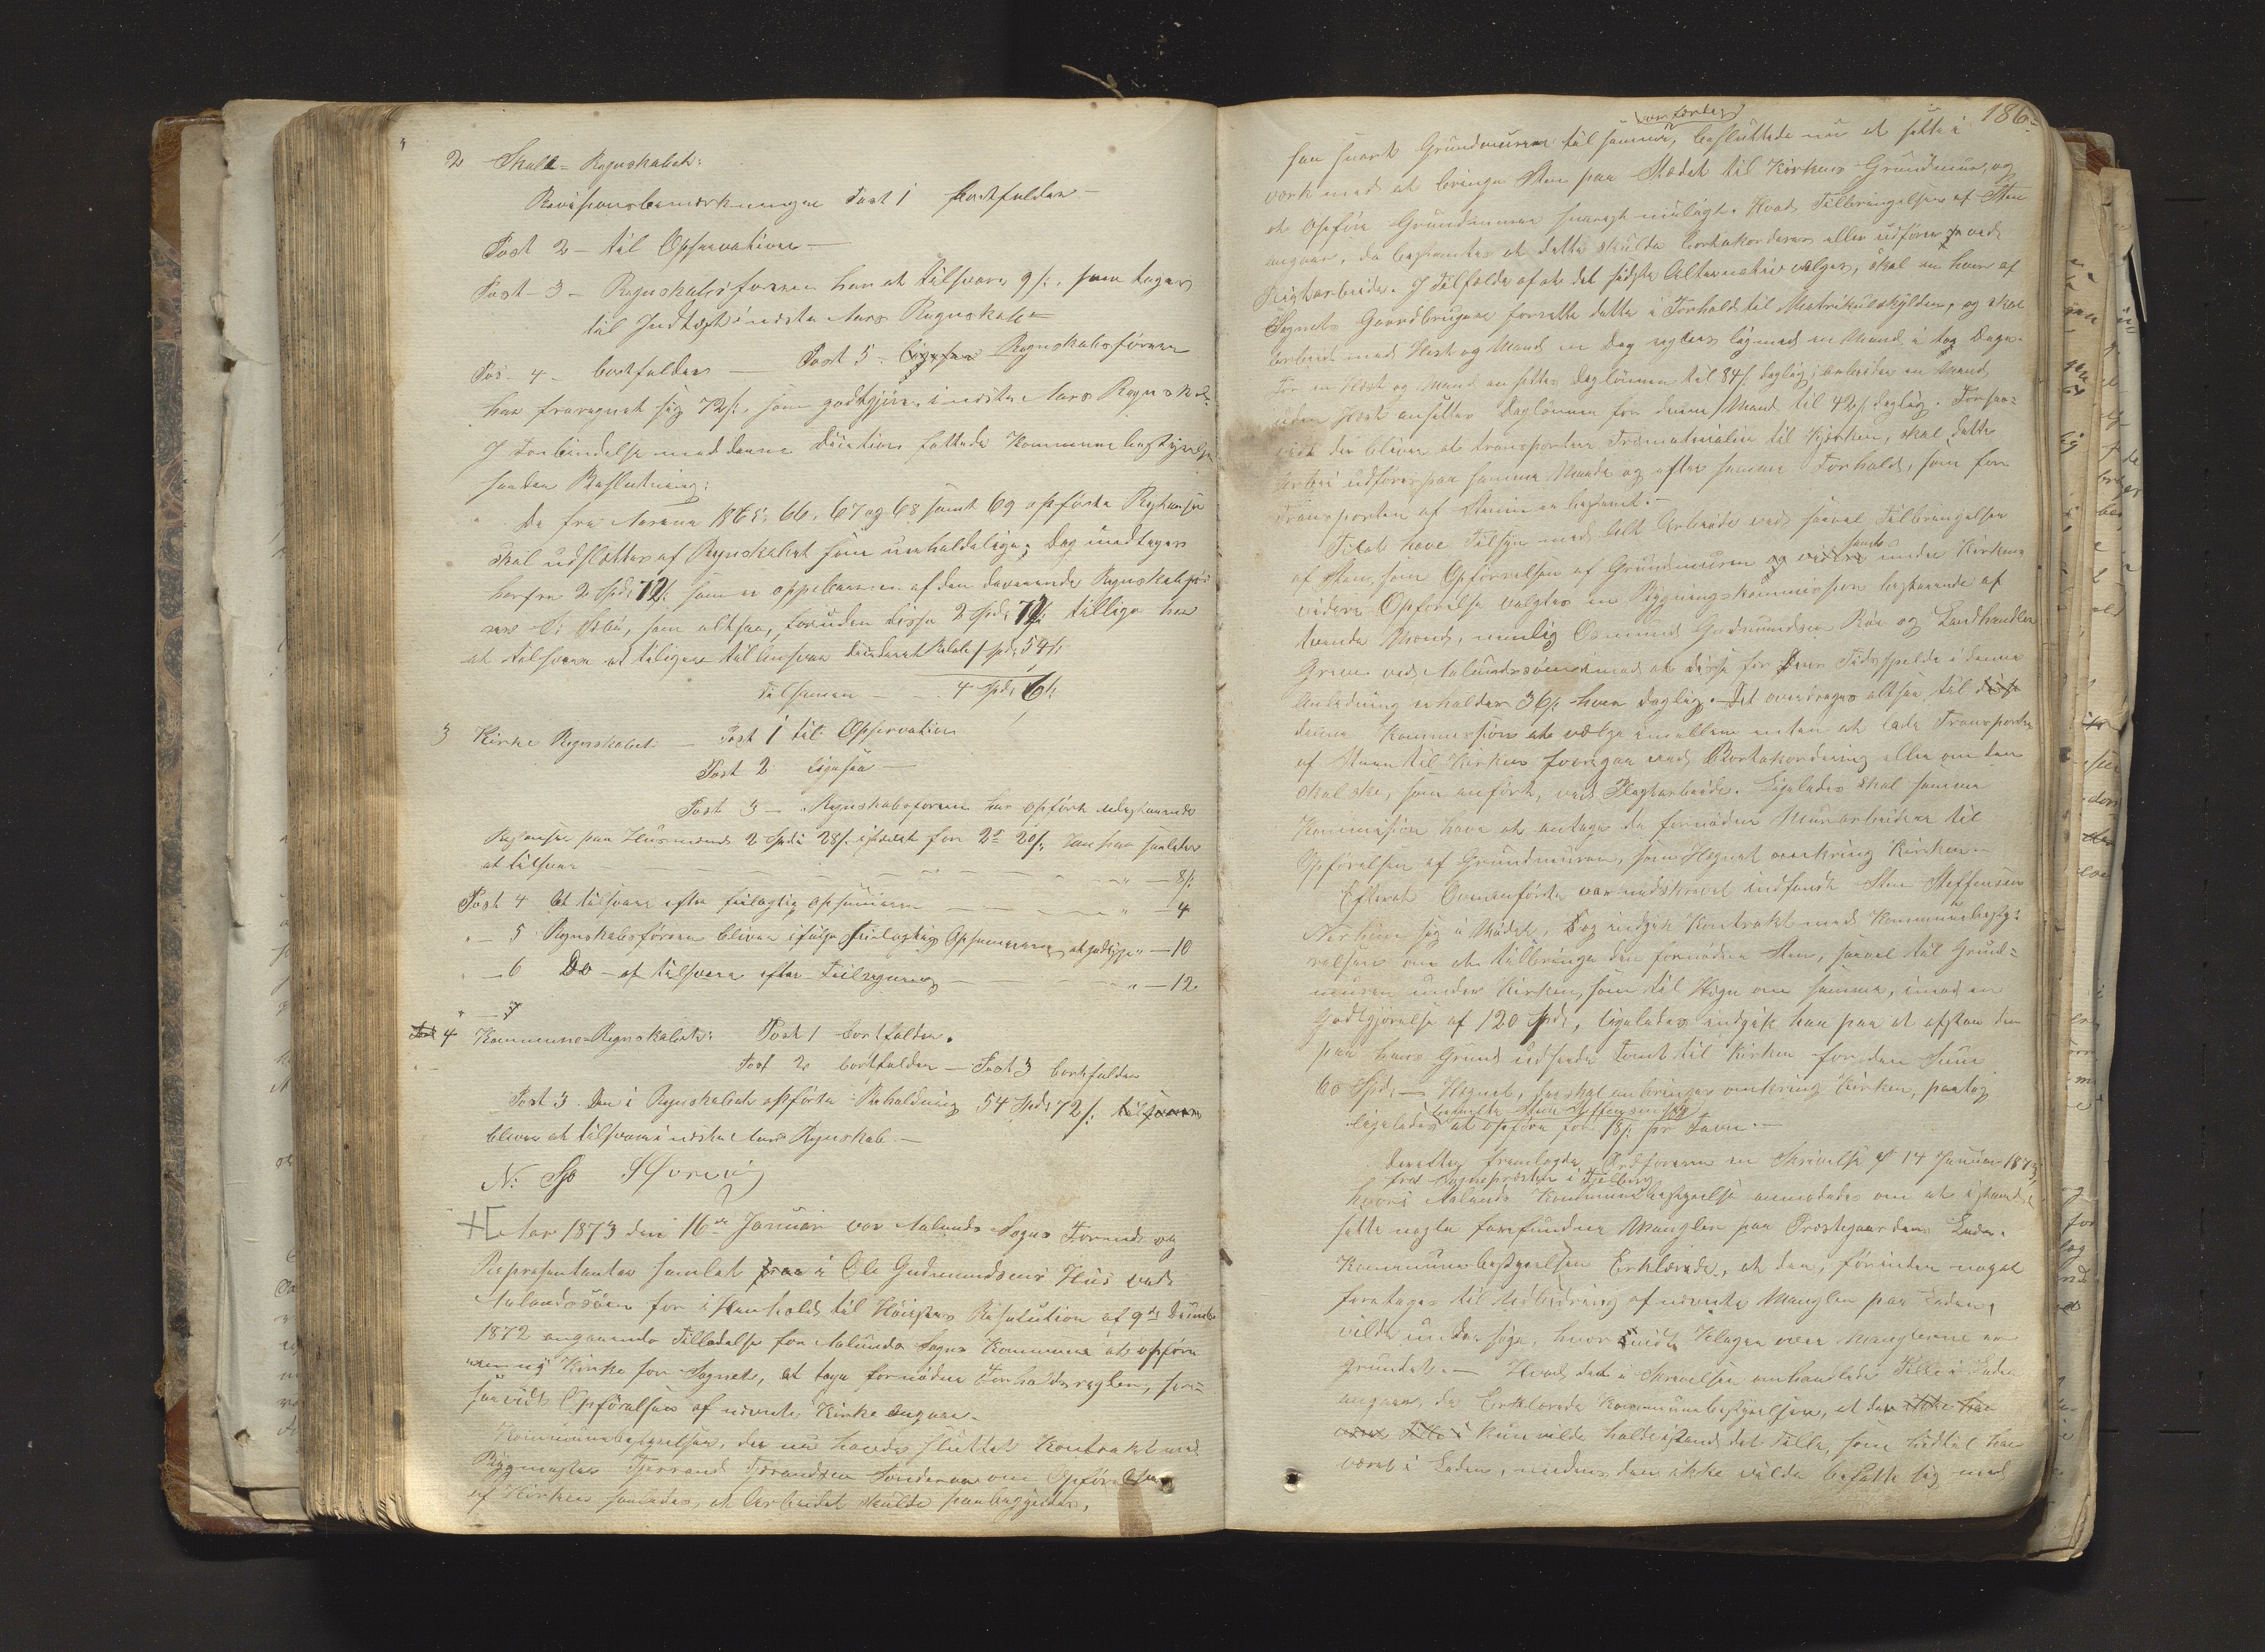 2 Skole-Regnskabet:
Revisionsbemærkningen Post 1 bortfalder –
Post 2 – til Observation –
Post – 3 – Regnskabsføreren har at tilsvare 9 s. som tages
til Indtægt i næste Aars Regnskab –
Pos – 4 – bortfalder – Post 5 – Regnskabsføreren
har fraregnet sig 72 s., som godtgjøres i næste Aars Regnskab.
I Forbindelse med denne Decision fattede Kommunebestyrelsen
saadan Beslutning:
De fra Aarene 1865, 66, 67 og 68 samt 69 opførte Restanser
skal udslettes af Regnskabet som uerholdelige; Dog undtages
herfra 2 Spd. 72 s. som er oppebaaren af den daværende Regnskabsfø-
rer, som altsaa, foruden disse 2 Spd. 72 s. tillige har
at tilsvare et tidligere til Ansvar decideret Beløb 1 Spd. 54 s.
Tilsammen – – 4 Spd. 6 s.
3 Kirke Regnskabet – Post 1 til Observation
Post 2 ligesaa –
Post 3 – Regnskabsføreren har opført udestaaende
Restanser paa Husmænd 2 Spd. 28 s. istedet for 2 20 s. han har saaledes
at tilsvare – – – – – – – " – 8 s.
Post 4 At tilsvare efter feilagtig opsummeren – – – " – 4
" – 5 Regnskabsføreren bliver ifølge feilagtig Opsummeren at godtgjøre " – 10
" – 6 Do – at tilsvare efter Feilregning – – – " – 12
" – 7
4 Kommune-Regnskabet: Post 1 bortfalder.
Post 2 bortfalder – Post 3 bortfalder
Post 3. Den i Regnskabet opførte Beholdning 54 Spd. 72 s.
bliver at tilsvare i næste Aars Regnskab. –
Aar 1873 den 16de Januar var Aalunds Sogns Formænd og
Repræsentanter samlet i Ole Gudmundsens Hus ved
Aalundsøen for i Henhold til Høieste Resolution af 9de Decembr
1872 angaaende Tilladelse for Aalunds Sogns Kommune at opføre
en ny Kirke for Sognet, at tage fornødne Forholdsregler, for-
saavidt Opførelsen af nævnte Kirke angaar. –
Kommunebestyrelsen, der nu havde sluttet Kontrakt med
Bygmester Tjerrand Tjerandsen om Opførelsen
af Kirken saaledes, at Arbeidet skulde paabegyndes,
186.
var færdig
saa snart Grundmuren til samme, besluttede nu at sætte i
værk med at bringe Sten paa Stedet til Kirkens Grundmur, og
at opføre Grundmuren snarest muligt. Hvad Tilbringelsen af Sten
angaar, da bestemtes at dette skulde bortakorderes eller udføres ved
Pligtarbeide. I Tilfælde af at det sidste Alternativ vælges, skal en hver af
Sognets Gaardbrugere forrette dette i Forhold til Matrikulskylden, og skal
Arbeide med Hest og Mand en Dag regnes lig med en Mand i tog Dage.
For en Hest og Mand ansættes Daglønnen til 84 s. daglig; arbeider en Mand
uden Hest ansættes Daglønnen for denne Mand til 42 s. daglig. Forsaa-
vidt der bliver at transportere Træmaterialier til Kirken, skal dette
Arbei udføres paa samme Maade og efter samme Forhold, som for
Transporten af Stenen er bestemt. –
Til at have Tilsyn med alt Arbeide ved saavel Tilbringelsen
af Sten, som Opførelsen af Grundmuren samt under Kirkens
videre Opførelse valgtes en Bygningskommission bestaaende af
tvende Mænd, nemlig Osmund Gudmundsen Røe og Landhandler
Green ved Aalundsøen imod at disse for deres Tidsspilde i denne
Anledning erholder 36 s. hver daglig. Det overdrages altsaa til
denne Kommission at vælge imellem enten at lade Transporten
af Sten til Kirken foregaa ved Bortakordering eller om den
skal ske, som anført, ved Pligtarbeide. Ligeledes skal samme
Kommission have at antage de fornødne Murarbeidere til
Opførelsen af Grundmuren, som Hegnet omkring Kirken. –
Efterat Ovenanførte var nedskrevet indfandt Sten Steffensen
sig i Mødet, og indgik Kontrakt med Kommunebesty-
relsen om at tilbringe den fornødne Sten, saavel til Grund-
muren under Kirken, som til Hegn om samme, imod en
Godtgjørelse af 120 Spd., ligeledes indgik han paa at afstaa den
paa hans Grund udseede Tomt til Kirken for den Sum
60 Spd. – Hegnet, der skal anbringes omkring Kirken, paatog
bemeldte Sten Steffensen sig
ligeledes at opføre for 18 s. pr Favn. –
Derefter fremlagdes Ordføreren en Skrivelse af 14 Januar 1873
fra Sognepresten i Fjelberg
hvori Aalunds Kommunebestyrelse anmodedes om at istand-
sætte nogle forefundne Mangler paa Præstegaardens Lade.
Kommunebestyrelsen Erklærede, at den, førinden noget
foretages til Udbedring af nævnte Mangler paa Laden,
vilde undersøge, hvorvidt Klagen over Manglerne er
grundet. – Hvad det i Skrivelsen omhandlede Tille i Laden
angaar, da Erklærede Kommunebestyrelsen, at den
kun vilde holde istand det Tille, som hidtil har
været i Laden, medens den ikke vilde befatte sig med